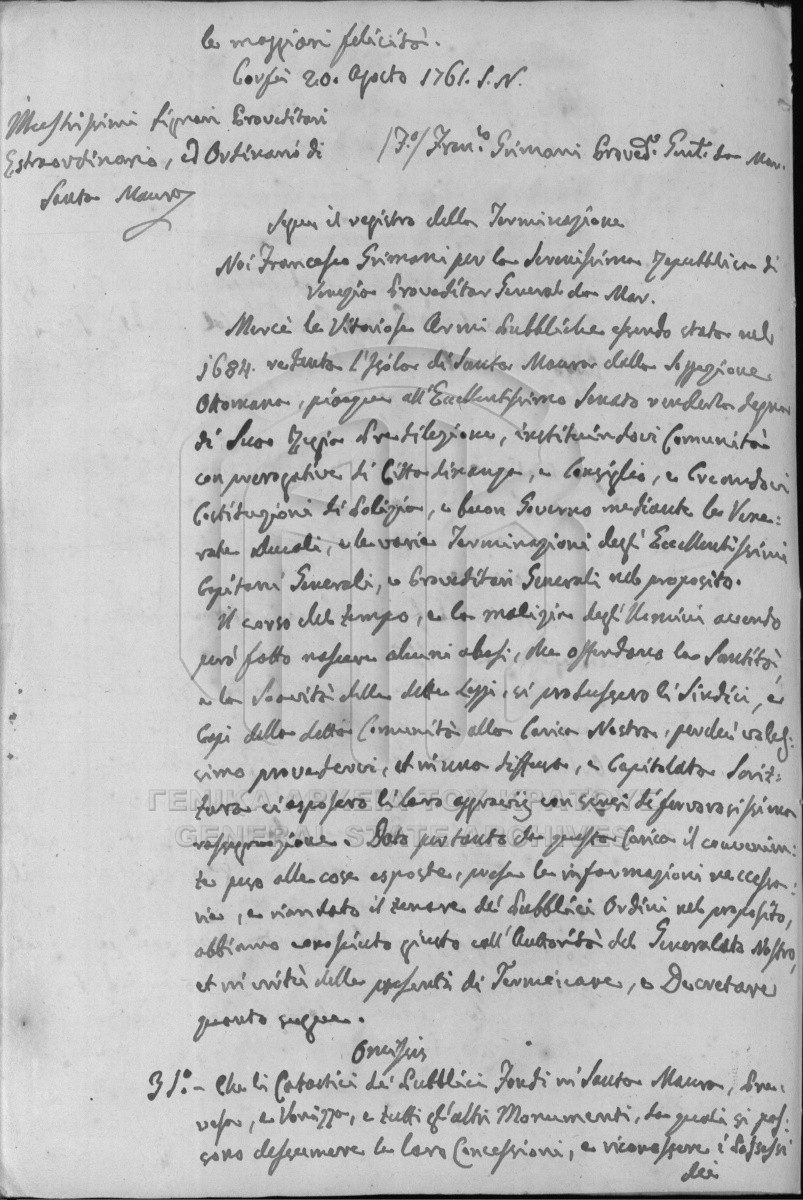 le maggiori felicità.
Corfù 20. Agosto 1761. S. N.
Illustrissimi Signori Proveditori
Estraordinario, ed Ordinario di
Santa Maura
/F.º/ Fran.co Grimani Proved.r Gñl. da Mar.
Segue il registro della Terminazione
Noi Francesco Grimani per la Serenissima Repubblica di
Venezia Proveditor General da Mar.
Mercè le Vitoriose Armi Pubbliche essendo stata nel
1684. redenta l'Isola di Santa Maura dalla Soggezione
Ottomana, piacque all'Eccellentissimo Senato renderla degna
di Sua Regia Predilezione, instituindovi Comunità
con prerogative di Cittadinanza, e Consiglio, e Creandovi
Costituzioni di Polizia, e buon Governo mediante le Vene:
rate Ducali, e le varie Terminazioni degl'Eccellentissimi
Capitani Generali, e Proveditori Generali nel proposito.
Il corso del tempo, e la malizia degl'Uomini avendo
però fatto nascere alcuni abusi, che offendono la Santità,
e la Soavità delle dette Leggi, si produssero li Sindici, e
Capi della detta Comunità alla Carica Nostra, perchè voles:
simo provedervi, et in una diffusa, e Capitolata Scrit:
tura ci esposero li loro aggravij con sensi di fervorosissima
rassegnazione. Dato per tanto da questa Carica il convenien:
te peso alle cose esposte, prese le informazioni necessa:
rie, e riandato il tenore dei Pubblici Ordini nel proposito,
abbiamo conosciuto giusto coll'Autorità del Generalato Nostro,
et in virtù delle presenti di Terminare, e Decretare
quanto segue.
Omissis
31.º - Che li Catastici dei Pubblici Fondi in Santa Maura, Pre:
vesa, e Vonizza, e tutti gl'altri Monumenti, da quali si pos:
sono desumere le loro Concessioni, e riconoscere i Possessi
dei
ΓΕΝΙΚΑ ΑΡΧΕΙΑ ΤΟΥ ΚΡΑΤΟΥΣ
GENERAL STATE ARCHIVES